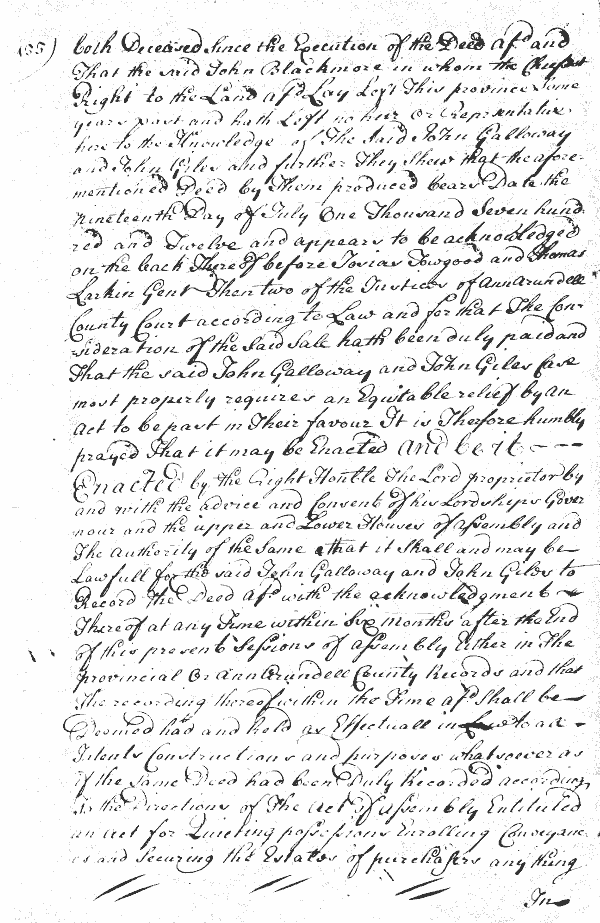 155)
both Deceased Since the Execution of the Deed afd and
That the said John Blackmore in whom the
Right to the Land afd Lay Left This province Some
years past and hath Left no heir Or Representative
here to the Knowledge of The Said John Galloway
and John Giles and further They Shew that the afore
mentioned Deed by Them produced bears Date the
nineteenth Day of July One Thousand Seven hund
red and Twelve and appears to be acknowledged
on the back Thereof before Josias Towgood and Thomas
Larkin Gent Then two of the Justices of annarundell
County Court according to Law and for that The Con
sideration of the Said Sale hath been duly paid and
That the said John Galloway and John Giles Case
most properly requires an Equitable relief by an
act to be past in Their favour It is Therfore humbly
prayed That it may be Enacted and be it - - -
Enacted by the Right Honble The Lord proprietor by
and with the advice and Consent of his Lordships Gover
nour and the upper and Lower Houses of assembly and
The authority of the Same that it Shall and may be
Lawfull for the said John Galloway and John Giles to
Record the Deed afd with the acknowledgment
Thereof at any Time within Six months after the End
of this present Sessions of assembly Either in The
provincial Or annArundell County Records and that
The recording thereof within the Time afd Shall be
Deemed had and held as Effectuall in Law to all
Intents Constructions and purposes whatsoever as
if the same Deed had been Duly Recorded according
to the Directions of The act of assembly Entituled
an act for Quieting possessions Enrolling Conveyanc
es and Securing the Estates of purchasers any thing
In